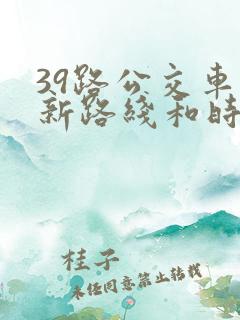 39路公交车
新路线和时
桂子
未经同意禁止转载